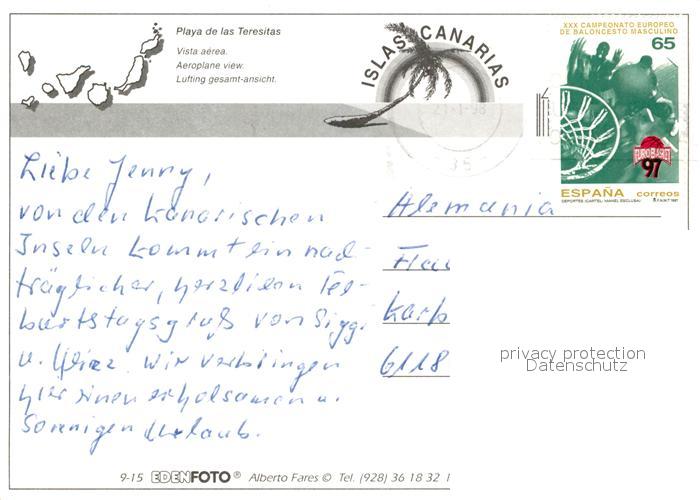 Playa de las Teresitas
Vista aérea.
Aeroplane view.
Lufting gesamt-ansicht.
ISLAS CANARIAS
XXX CAMPEONATO EUROPEO
DE BALONCESTO MASCULINO
65
EURO BASKET
97
ESPAÑA correos
Liebe Jenny,
von den kanarischen
Inseln kommt ein nach-
träglicher, herzlichen Ge-
burtstagsgruß von Siggi
u. Wir verbringen
hier einen erholsamen u.
Sonnigen Urlaub.
Alemania
Frau
Karb
6118
privacy protection
Datenschutz
9-15 EDENFOTO® Alberto Fares © Tel. (928) 36 18 32